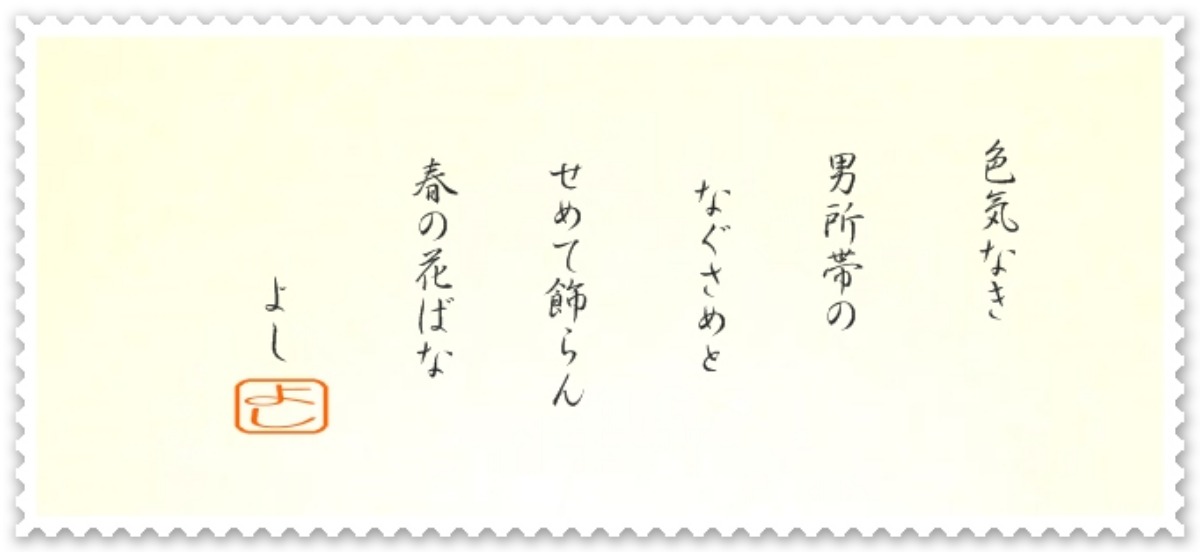 色気なき
男所帯の
なぐさめと
せめて飾らん
春の花ばな
よし
よし